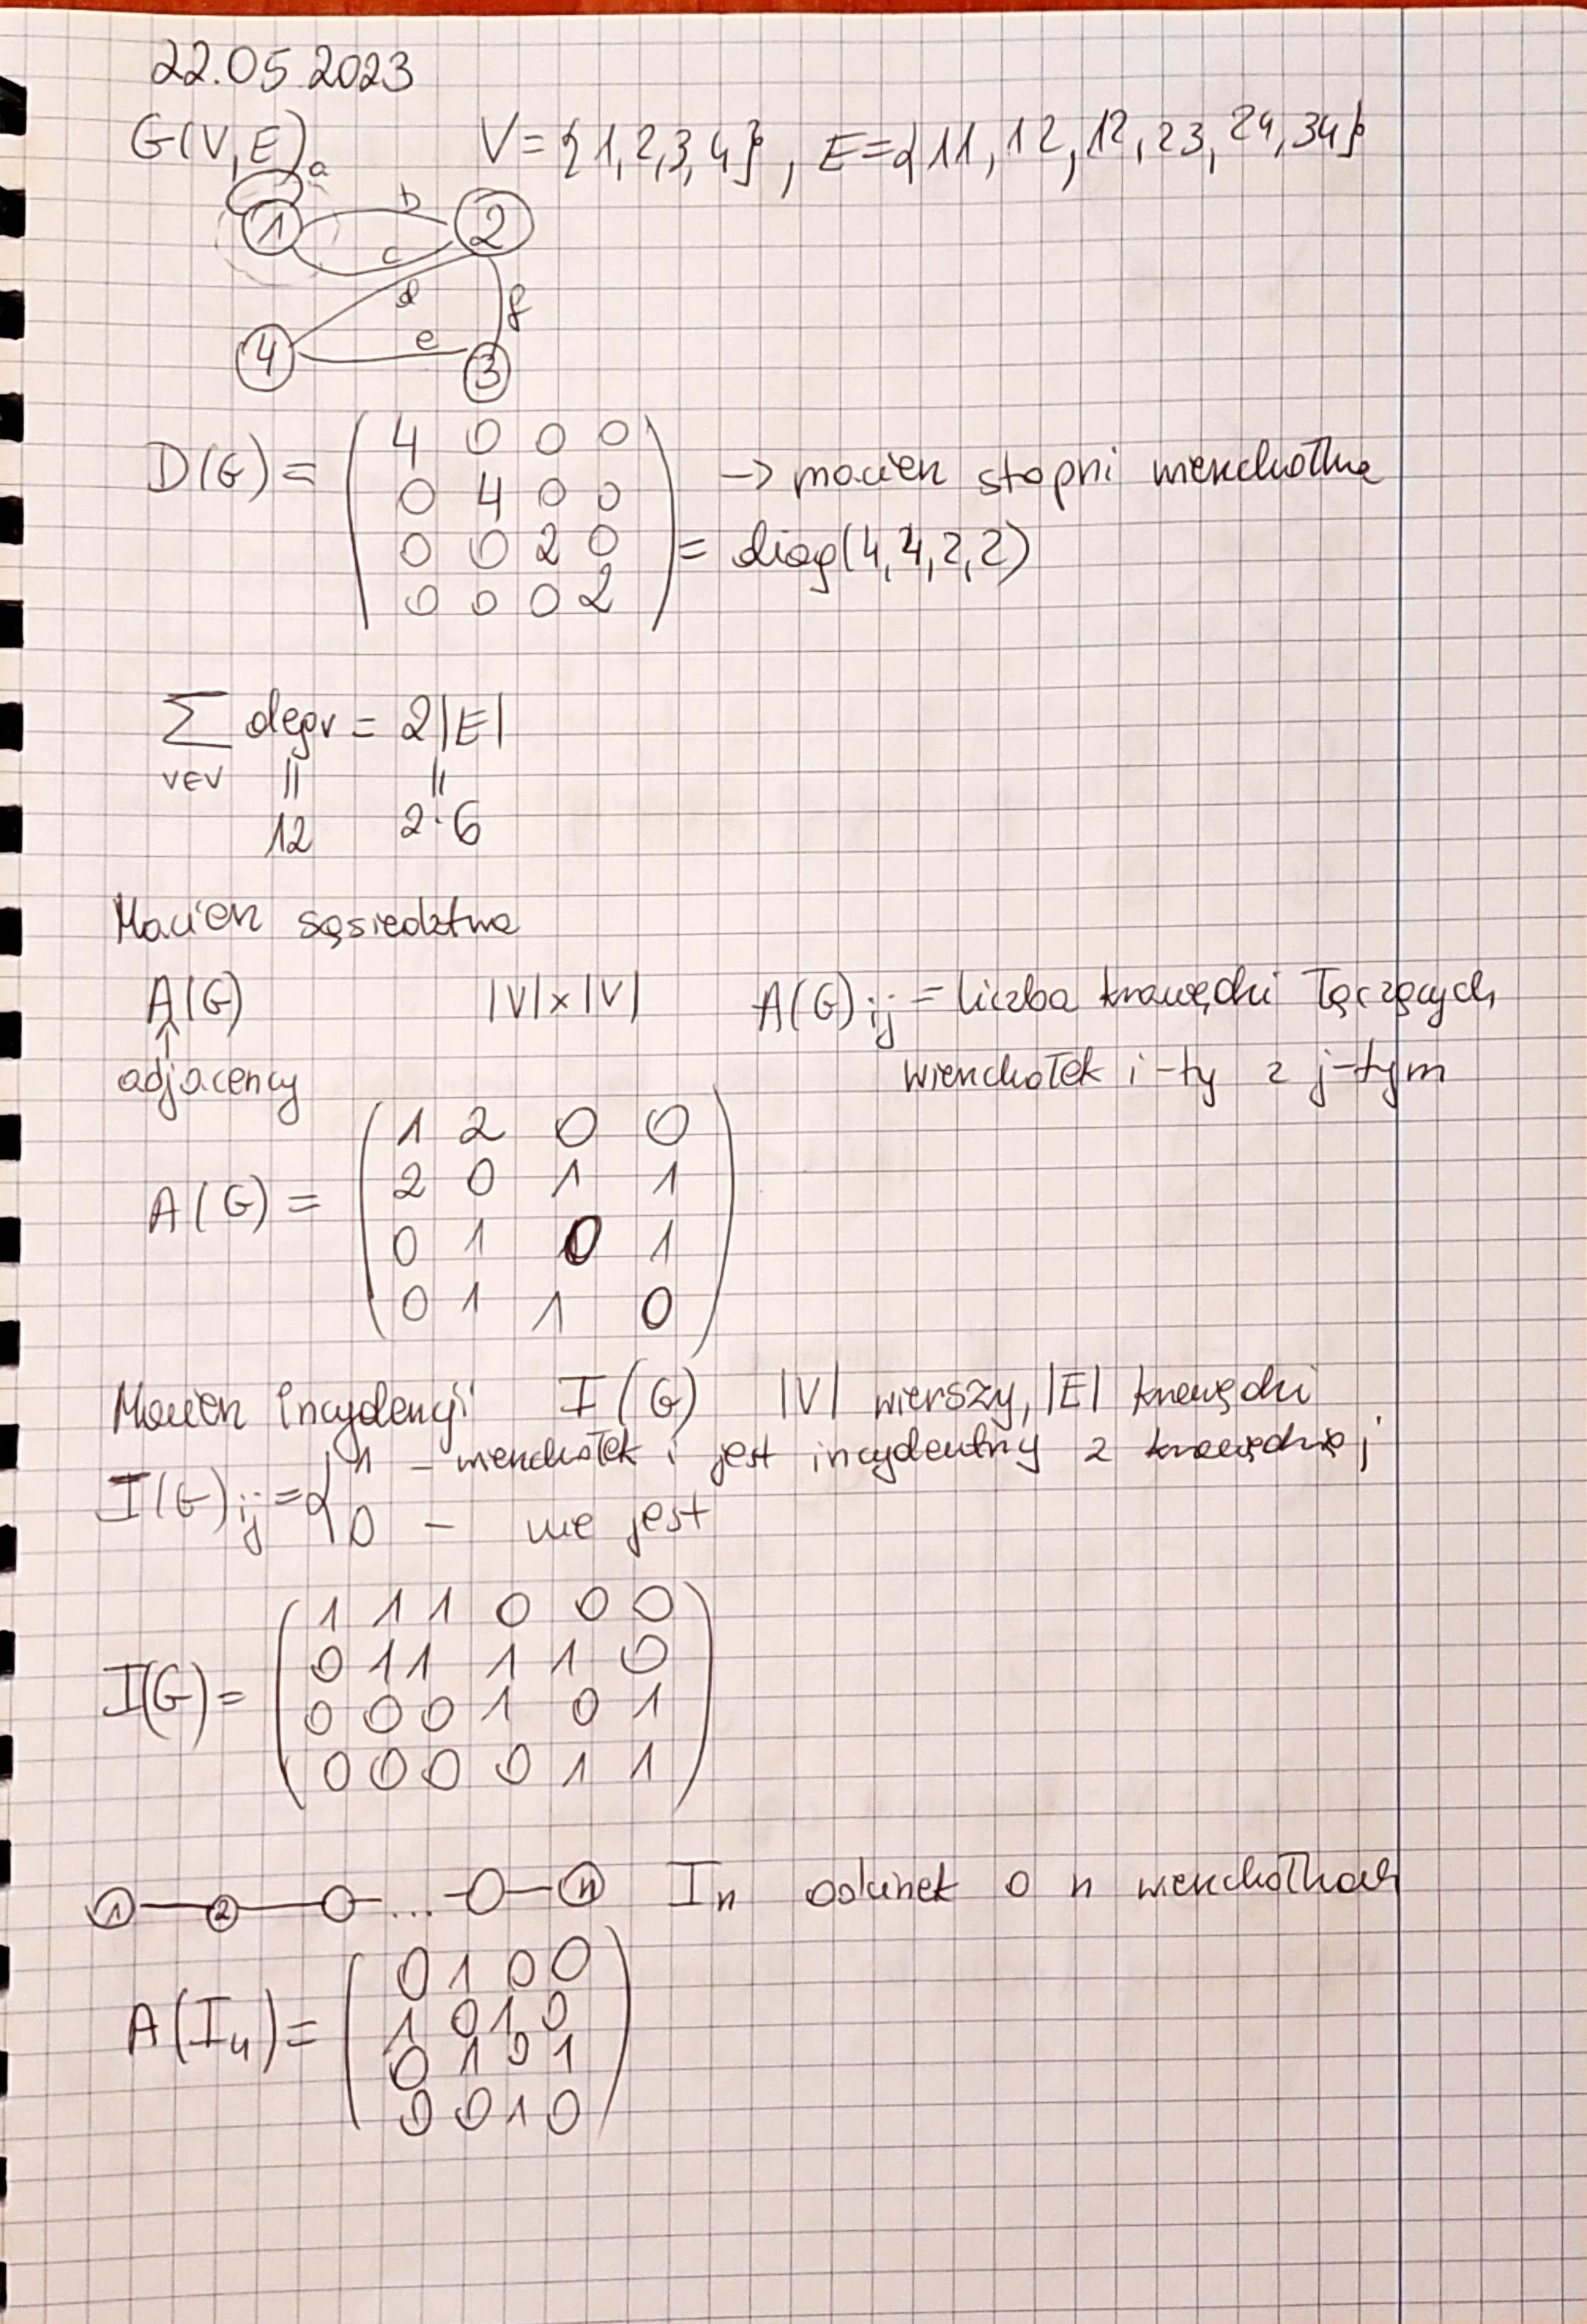 22.05.2023
G(V,E) V={1,2,3,4}, E={11,12,12,23,24,34}
a
1 b 2
c
d f
4 e 3
D(G)= ( 4 0 0 0
0 4 0 0
0 0 2 0
0 0 0 2 ) → macierz stopni wierzchołka
= diag(4,4,2,2)
∑ degv = 2|E|
v∈V || ||
12 2·6
Macierz sąsiedztwa
A(G) |V|×|V| A(G)ij = liczba krawędzi łączących
↑
adjacency wierzchołek i-ty z j-tym
A(G)= ( 1 2 0 0
2 0 1 1
0 1 0 1
0 1 1 0 )
Macierz incydencji I(G) |V| wierszy, |E| krawędzi
I(G)ij = { 1 – wierzchołek i jest incydentny z krawędzią j
0 – nie jest
I(G)= ( 1 1 1 0 0 0
0 1 1 1 1 0
0 0 0 1 0 1
0 0 0 0 1 1 )
1 2 ... n In odcinek o n wierzchołkach
A(I4)= ( 0 1 0 0
1 0 1 0
0 1 0 1
0 0 1 0 )